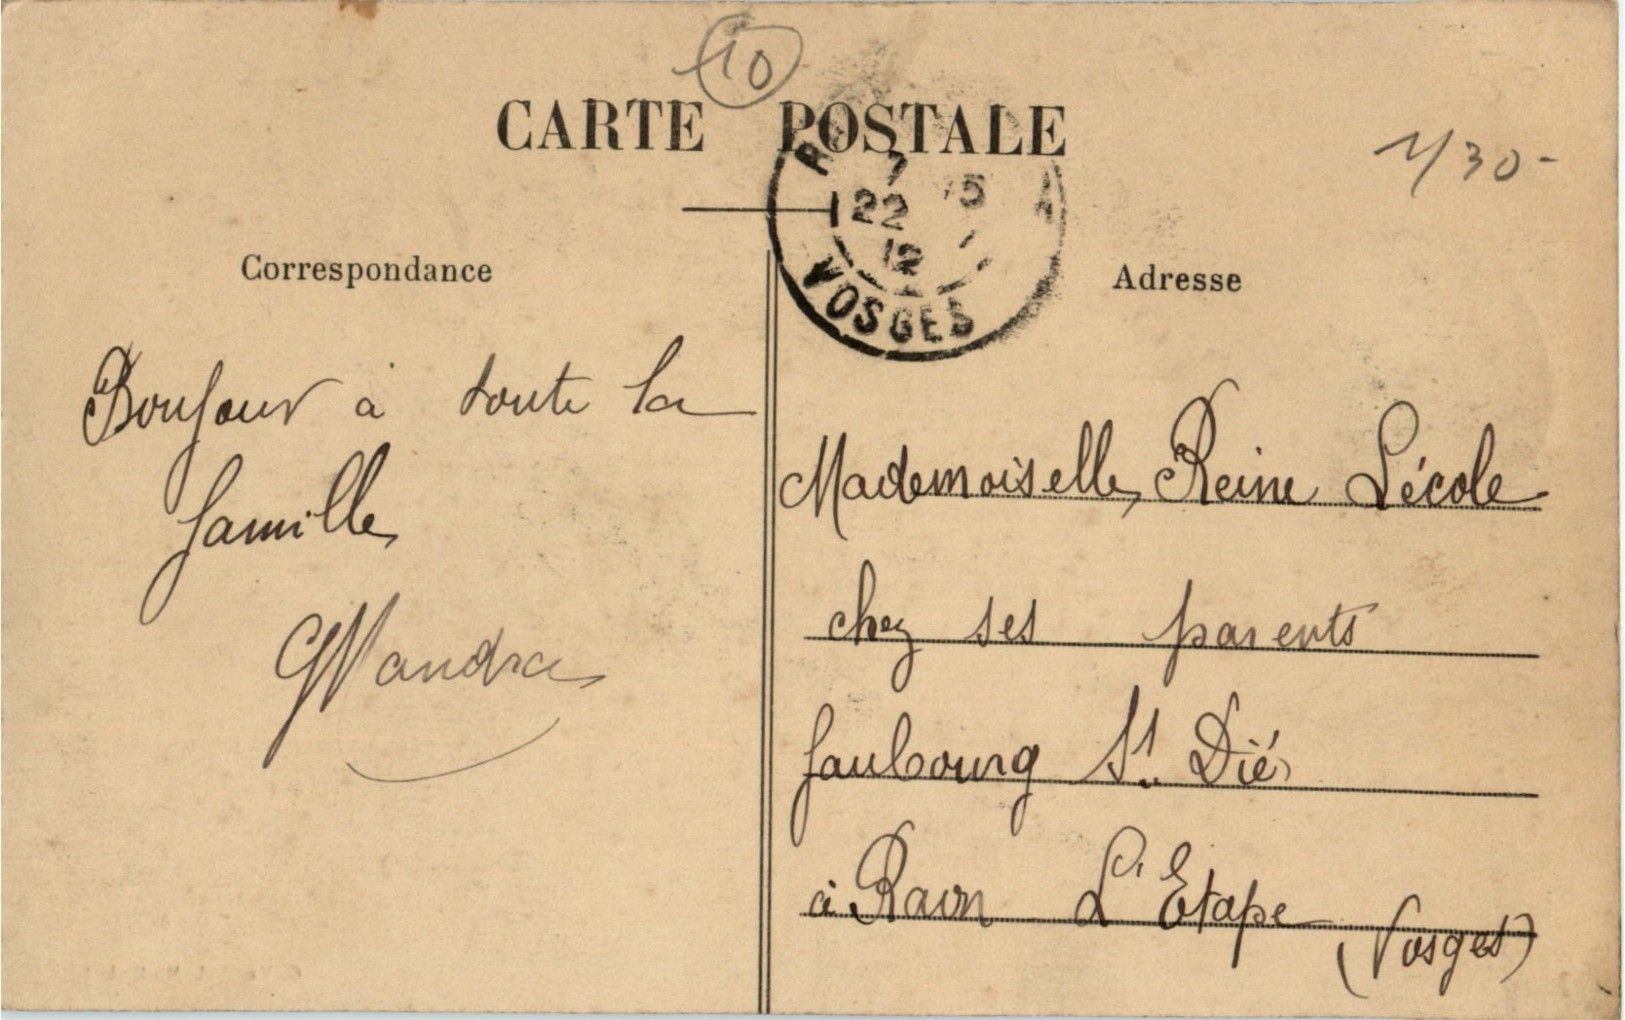 10
CARTE POSTALE
7 15
22
12
VOSGES
Correspondance
Bonjour à toute la
famille
Adresse
Mademoiselle Reine Lécole
chez ses parents
faubourg St. Dié
à Raon L'Etape
(Vosges)